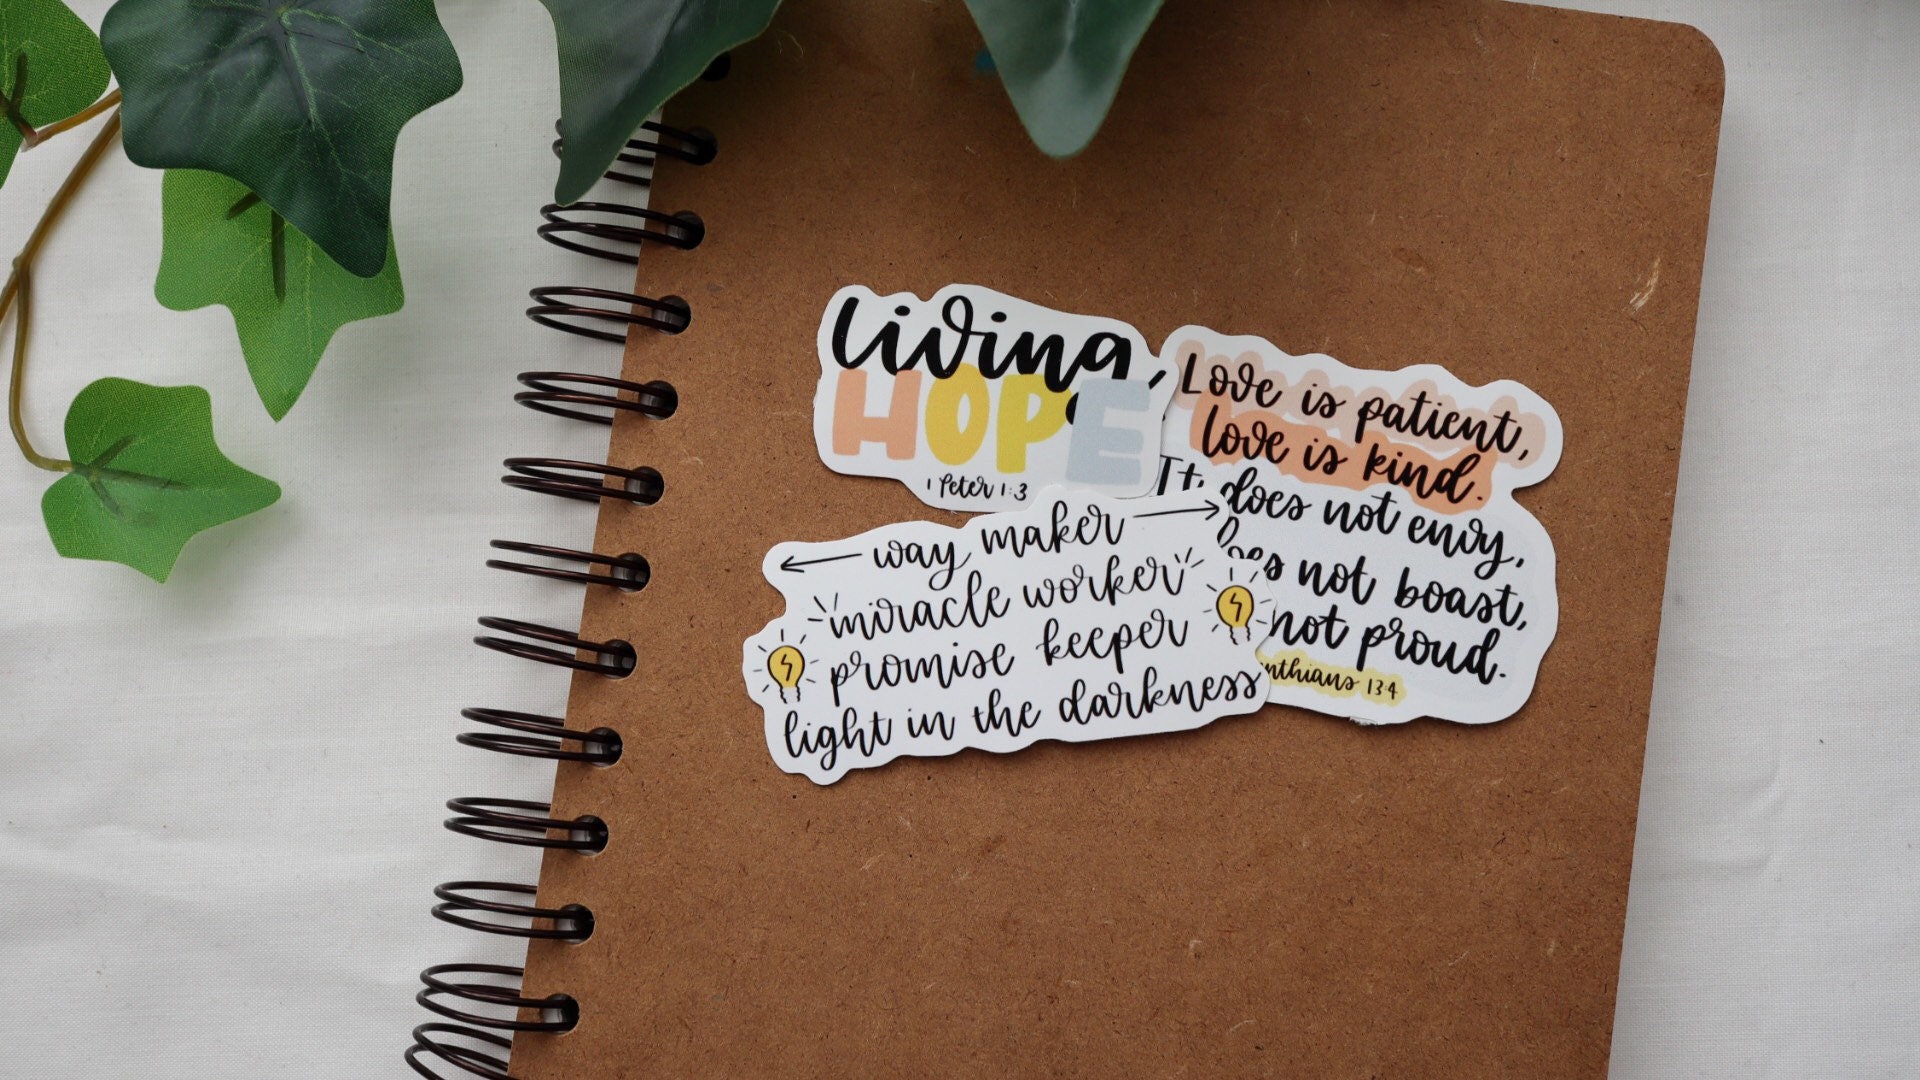 living
HOPE
1 Peter 1:3
Love is patient,
love is kind.
It does not envy,
not boast,
not proud.
13:4
way maker
miracle worker
promise keeper
light in the darkness